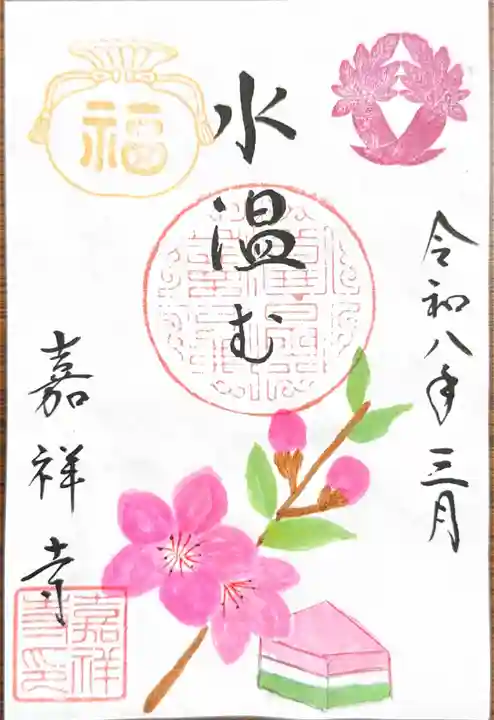 令和八年三月
水温む
嘉祥寺
福
嘉祥
寺印